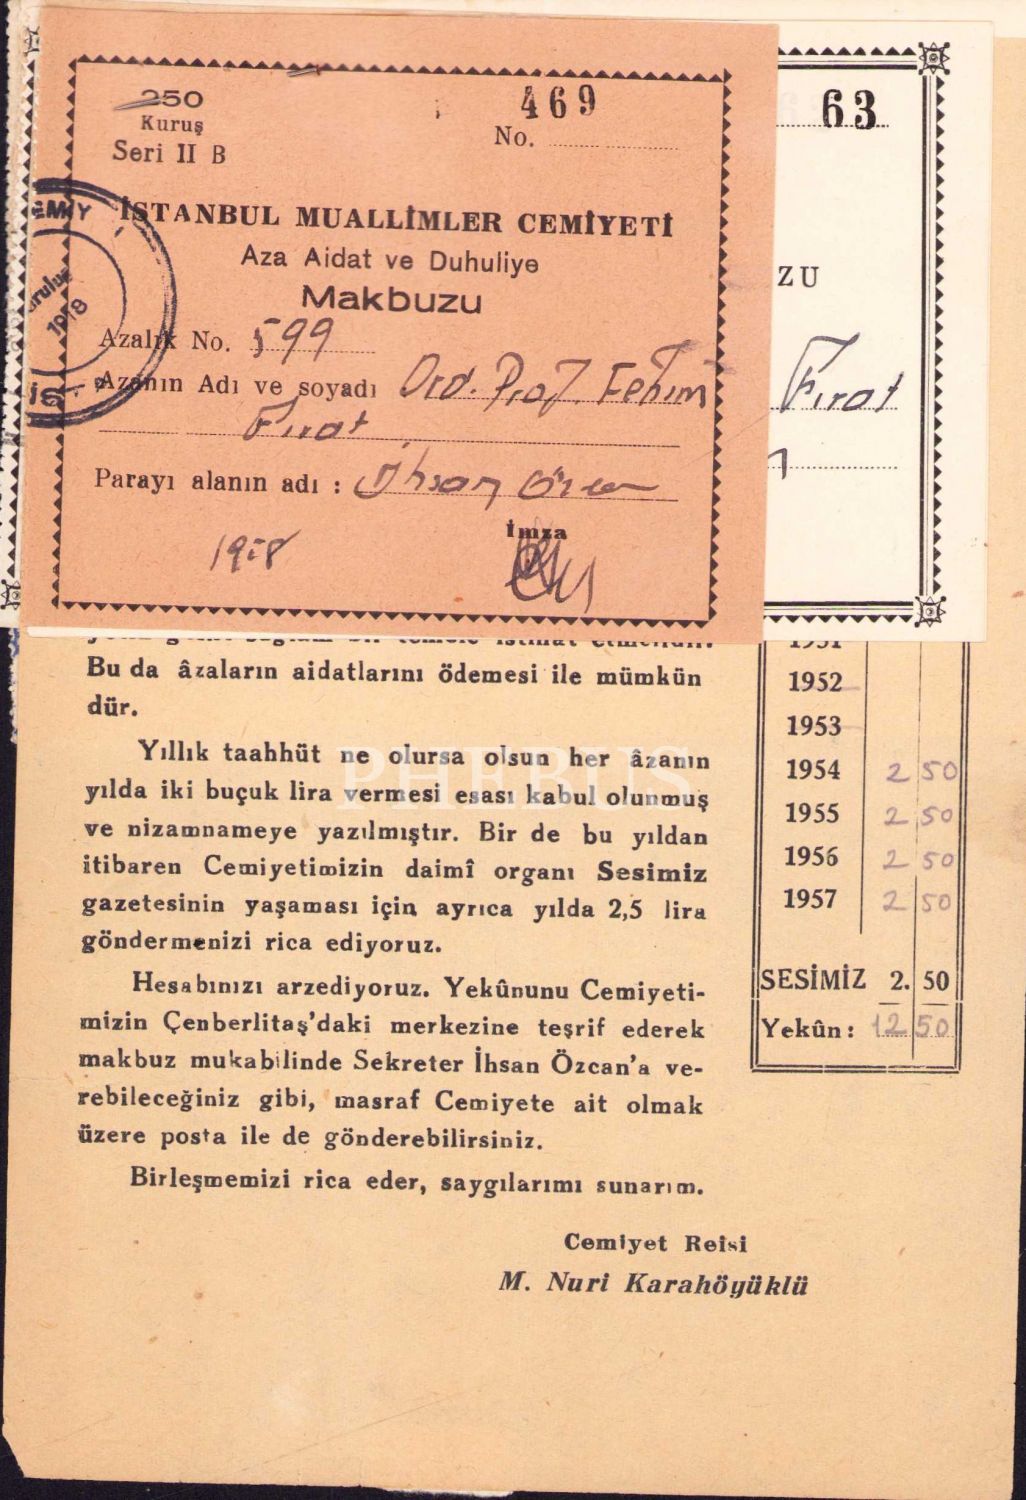 250
Kuruş
Seri II B
469
No.
İSTANBUL MUALLİMLER CEMİYETİ
Aza Aidat ve Duhuliye
Makbuzu
Azalık No. 599
Azanın Adı ve soyadı Ord. Prof. Fehim
Fırat
Parayı alanın adı : İhsan Özcan
İmza
1958
1918
63
ZU
Fırat
temele istinat etmelidir.
Bu da âzaların aidatlarını ödemesi ile mümkün
dür.
Yıllık taahhüt ne olursa olsun her âzanın
yılda iki buçuk lira vermesi esası kabul olunmuş
ve nizamnameye yazılmıştır. Bir de bu yıldan
itibaren Cemiyetimizin daimî organı Sesimiz
gazetesinin yaşaması için ayrıca yılda 2,5 lira
göndermenizi rica ediyoruz.
Hesabınızı arzediyoruz. Yekûnunu Cemiyeti-
mizin Çenberlitaş'daki merkezine teşrif ederek
makbuz mukabilinde Sekreter İhsan Özcan'a ve-
rebileceğiniz gibi, masraf Cemiyete ait olmak
üzere posta ile de gönderebilirsiniz.
Birleşmemizi rica eder, saygılarımı sunarım.
Cemiyet Reisi
M. Nuri Karahöyüklü
1951
1952
1953
1954 2 50
1955 2 50
1956 2 50
1957 2 50
SESİMİZ 2. 50
Yekûn : 12 50
PHEBUS